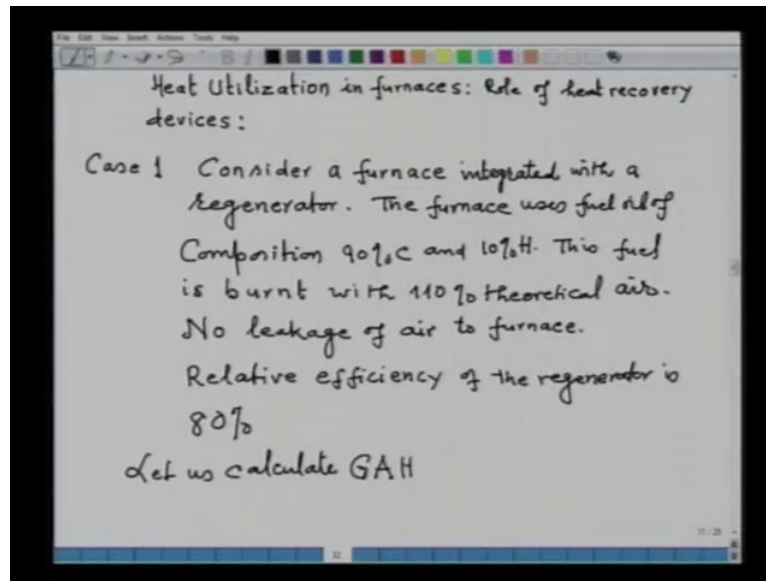 File Edit View Insert Actions Tools Help
Heat Utilization in furnaces: Role of heat recovery
devices:
Case 1 Consider a furnace integrated with a
regenerator. The furnace uses fuel oil of
Composition 90%C and 10%H. This fuel
is burnt with 110% theoretical air.
No leakage of air to furnace.
Relative efficiency of the regenerator is
80%
Let us calculate GAH